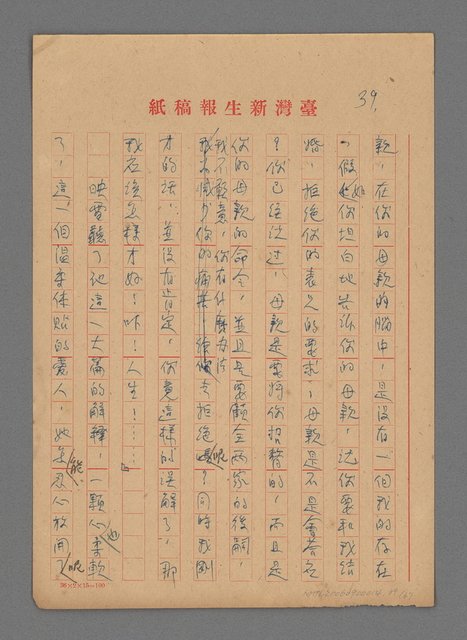 紙稿報生新灣臺
39.
親,在你的母親的腦中,是沒有一個我的存在
,假如你坦白地告訴你的母親,說你要和我結
婚,拒絕你的表兄的要求,母親是不是會答應
?你已經說過,母親是要將你招贅的,而且是
你的母親的命令,並且是要顧全兩家的後嗣,
我不願意,你有什麼方法去拒絕呢?同時我剛
才的話,並沒有肯定,你竟這樣的誤解了,那
我應該怎樣才好!咳!人生!⋯⋯
映雪聽了他這一大篇的解釋,一顆心也柔軟
了,這一個溫柔体貼的愛人,她怎能忍心放開呢
36×2×15=100